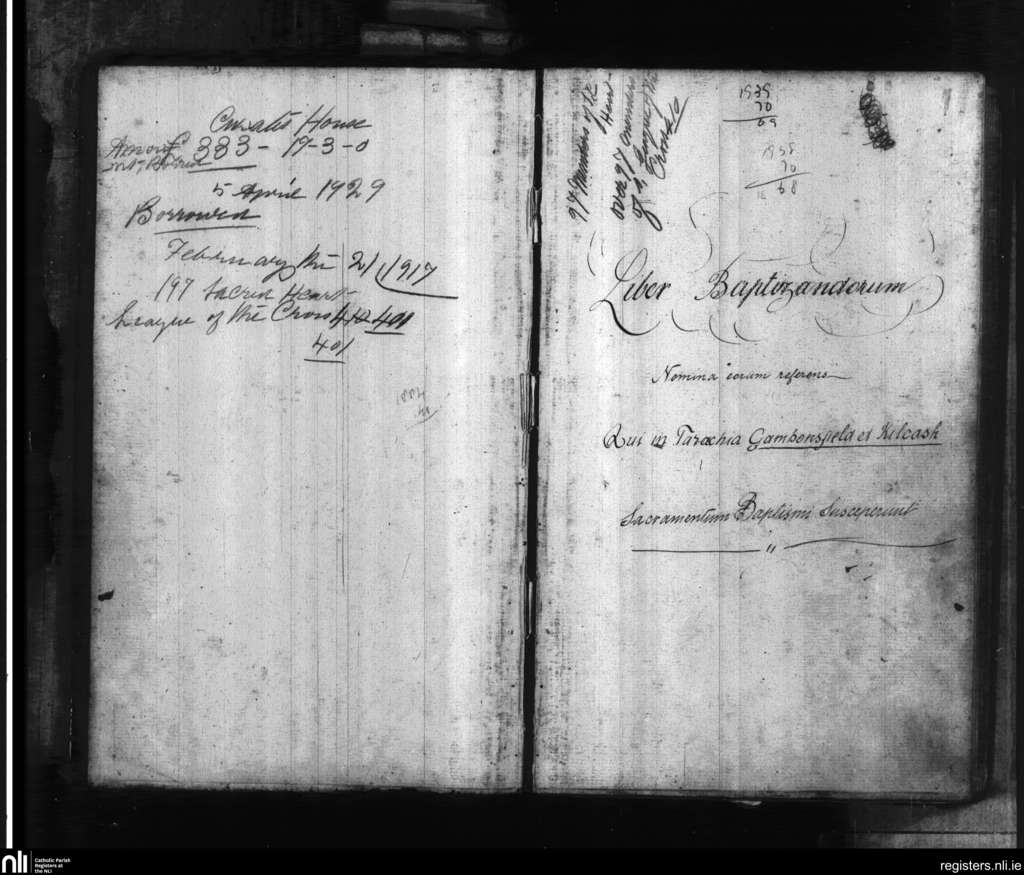 Curates House
Amount 383 - 17 - 3 - 0
5 April 1929
Borrowed
February the 21 1917
197 Sacred Heart
League of the Cross 412 401
401
1939
70
69
1938
70
68
97 Members of the
over 97 members
of the League of the
Cross
Liber Baptizandorum
Nomina eorum referens
Qui in Parochia Gambonsfield et Kilcash
Sacramentum Baptismi Susceperunt
nli Catholic Parish
Registers at
the NLI
registers.nli.ie